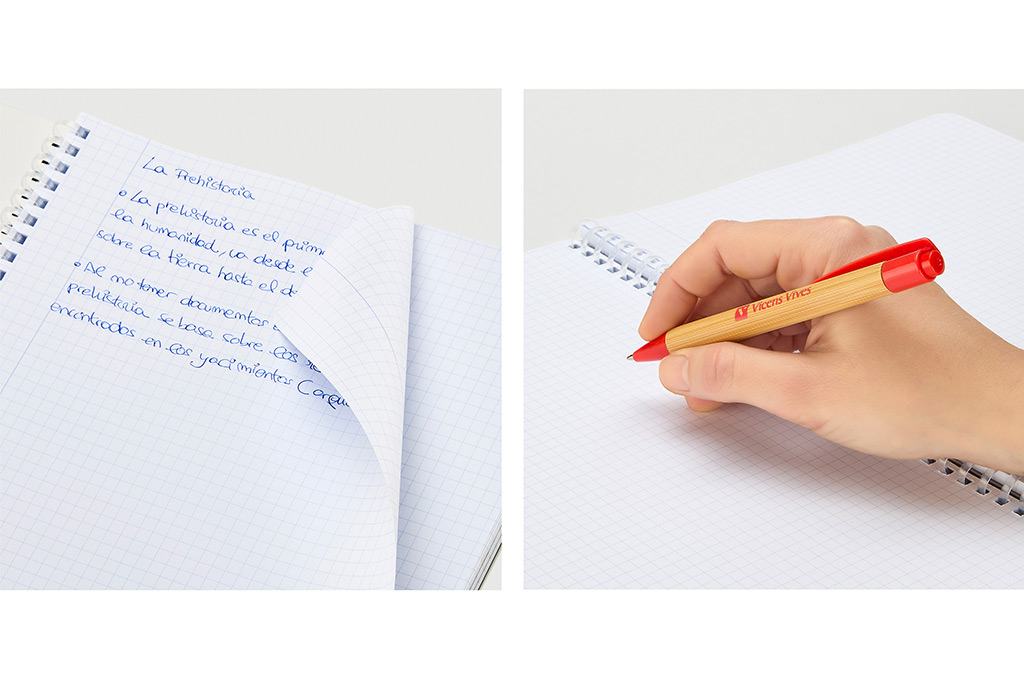 La Prehistoria
• La prehistoria es el prim
la humanidad, va desde e
sobre la tierra hasta el de
• Al no tener documentos
prehistoria se basa sobre los re
encontrados en los yacimientos
Vicens Vives